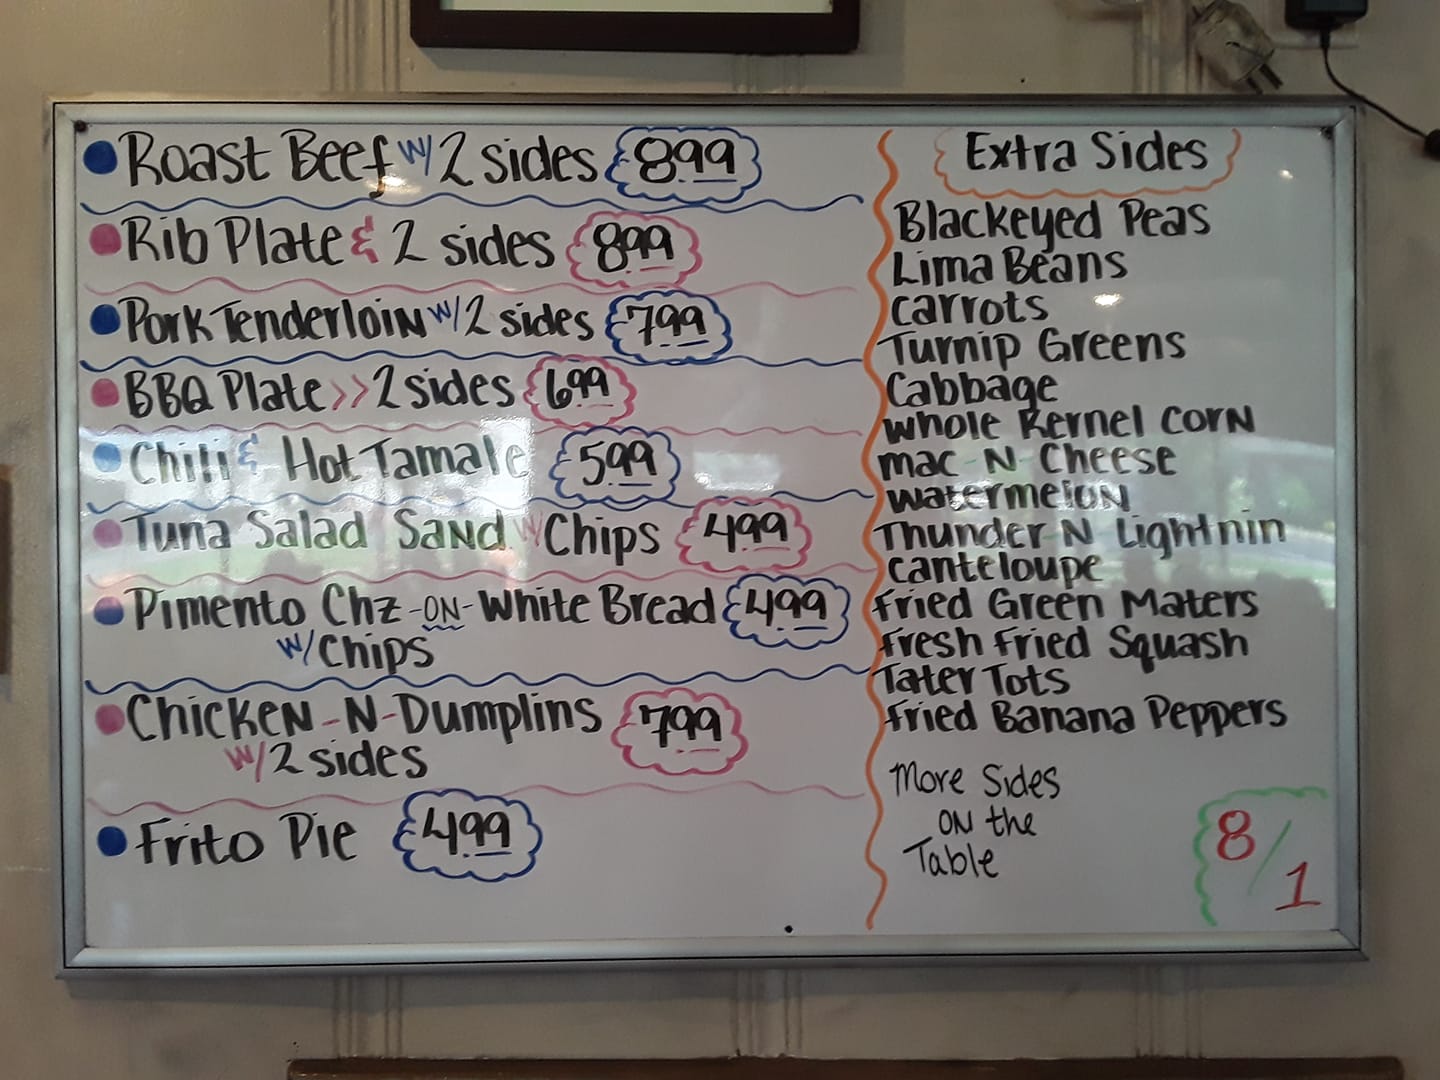 Roast Beef w/ 2 sides 899
Rib Plate & 2 sides 899
Pork Tenderloin w/ 2 sides 799
BBQ Plate >> 2 sides 699
Chili & Hot Tamale 599
Tuna Salad Sand w/ Chips 499
Pimento Chz -ON- White Bread 499
w/ Chips
Chicken-N-Dumplins 799
w/ 2 sides
Frito Pie 499
Extra Sides
Blackeyed Peas
Lima Beans
Carrots
Turnip Greens
Cabbage
Whole Kernel Corn
Mac N Cheese
Watermelon
Thunder N Lightnin
Canteloupe
Fried Green Maters
Fresh Fried Squash
Tater Tots
Fried Banana Peppers
More Sides
ON the
Table
8/1